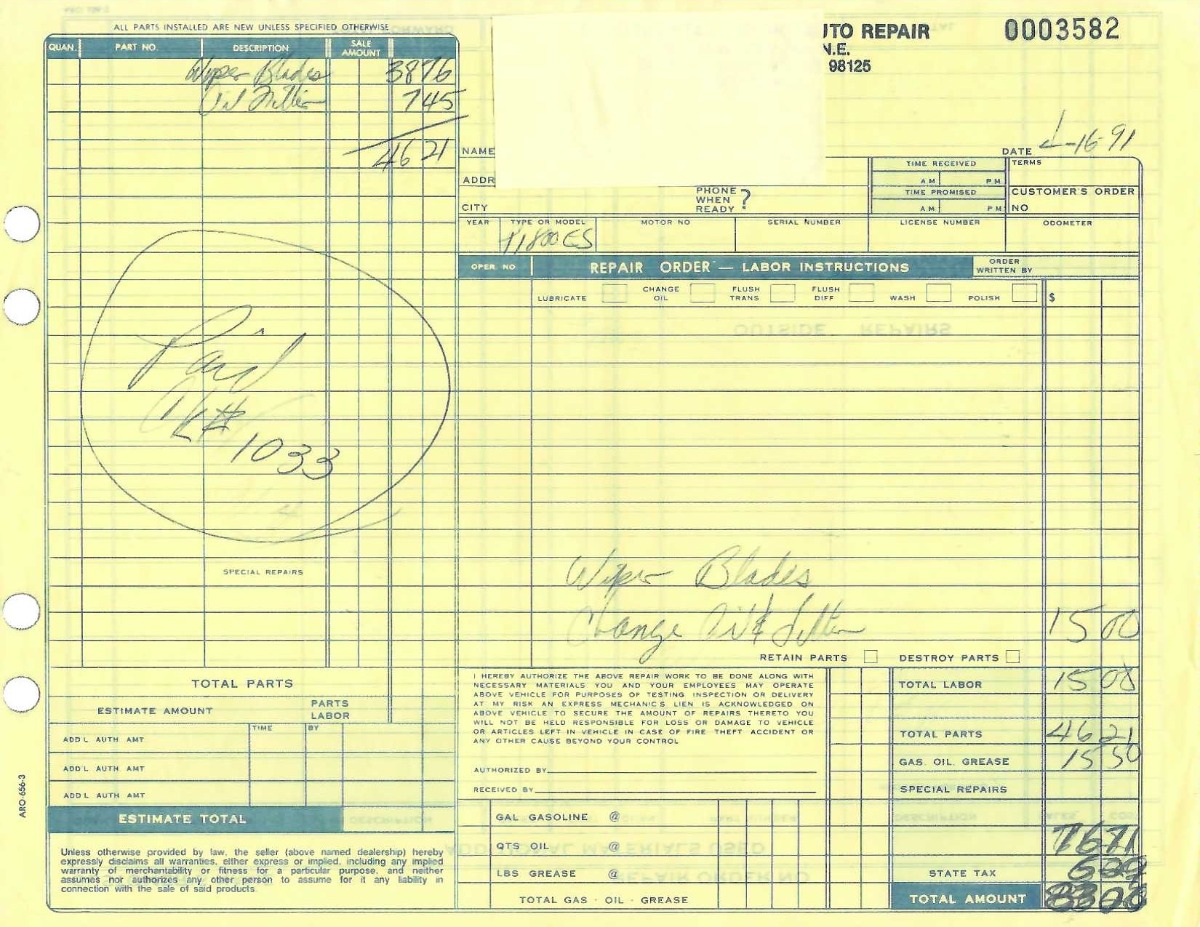 ALL PARTS INSTALLED ARE NEW UNLESS SPECIFIED OTHERWISE
QUAN. PART NO. DESCRIPTION SALE AMOUNT
Wiper Blades 3876
Oil Filter 745
4621
Paid
CK# 1033
SPECIAL REPAIRS
TOTAL PARTS
ESTIMATE AMOUNT PARTS LABOR
TIME BY
ADD'L AUTH AMT
ADD'L AUTH AMT
ADD'L AUTH AMT
ESTIMATE TOTAL
Unless otherwise provided by law, the seller (above named dealership) hereby
expressly disclaims all warranties, either express or implied, including any implied
warranty of merchantability or fitness for a particular purpose, and neither
assumes nor authorizes any other person to assume for it any liability in
connection with the sale of said products.
ARO-656-3
UTO REPAIR 0003582
N.E.
98125
NAME
DATE -16-91
ADDR
CITY
PHONE WHEN READY ?
TIME RECEIVED
A M P M
TIME PROMISED
A M P M
TERMS
CUSTOMER'S ORDER NO
YEAR TYPE OR MODEL MOTOR NO SERIAL NUMBER LICENSE NUMBER ODOMETER
P1800ES
OPER. NO REPAIR ORDER — LABOR INSTRUCTIONS ORDER WRITTEN BY
LUBRICATE CHANGE OIL FLUSH TRANS FLUSH DIFF WASH POLISH $
Wiper Blades
Change Oil & Filter 1500
RETAIN PARTS DESTROY PARTS
I HEREBY AUTHORIZE THE ABOVE REPAIR WORK TO BE DONE ALONG WITH
NECESSARY MATERIALS YOU AND YOUR EMPLOYEES MAY OPERATE
ABOVE VEHICLE FOR PURPOSES OF TESTING INSPECTION OR DELIVERY
AT MY RISK AN EXPRESS MECHANIC'S LIEN IS ACKNOWLEDGED ON
ABOVE VEHICLE TO SECURE THE AMOUNT OF REPAIRS THERETO YOU
WILL NOT BE HELD RESPONSIBLE FOR LOSS OR DAMAGE TO VEHICLE
OR ARTICLES LEFT IN VEHICLE IN CASE OF FIRE THEFT ACCIDENT OR
ANY OTHER CAUSE BEYOND YOUR CONTROL
AUTHORIZED BY
RECEIVED BY
TOTAL LABOR 1500
TOTAL PARTS 4621
GAS. OIL. GREASE 1550
SPECIAL REPAIRS
GAL GASOLINE @
QTS OIL @ 7671
LBS GREASE @
STATE TAX
TOTAL GAS - OIL - GREASE
TOTAL AMOUNT